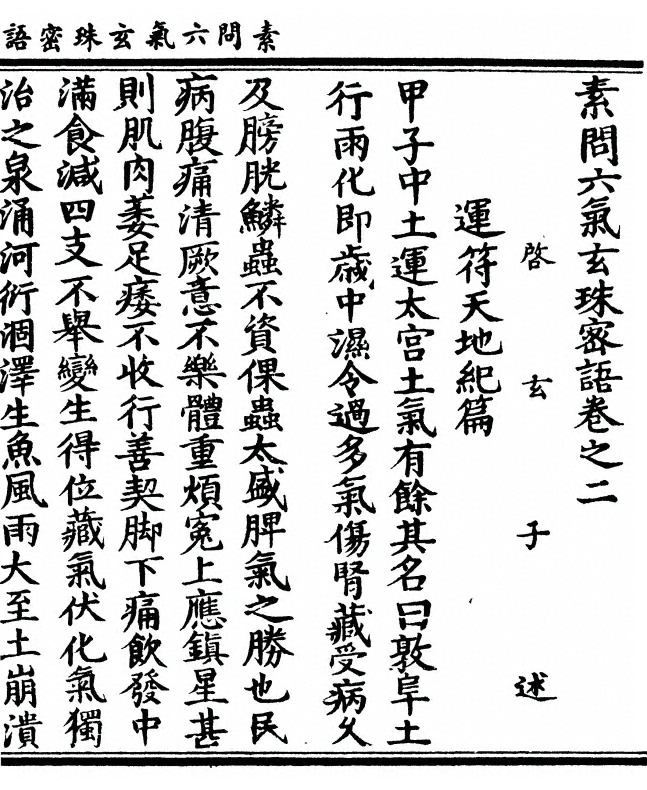 素問六氣玄珠密語
素問六氣玄珠密語卷之二
啓玄子述
運符天地紀篇
甲子中土運太宮土氣有餘其名曰敦阜土
行雨化即歲中濕令過多氣傷腎藏受病久
及膀胱鱗蟲不資倮蟲太盛脾氣之勝也民
病腹痛清厥意不樂體重煩寃上應鎮星甚
則肌肉萎足痿不收行善契脚下痛飲發中
滿食減四支不舉變生得位藏氣伏化氣獨
治之泉涌河衍涸澤生魚風雨大至土崩潰